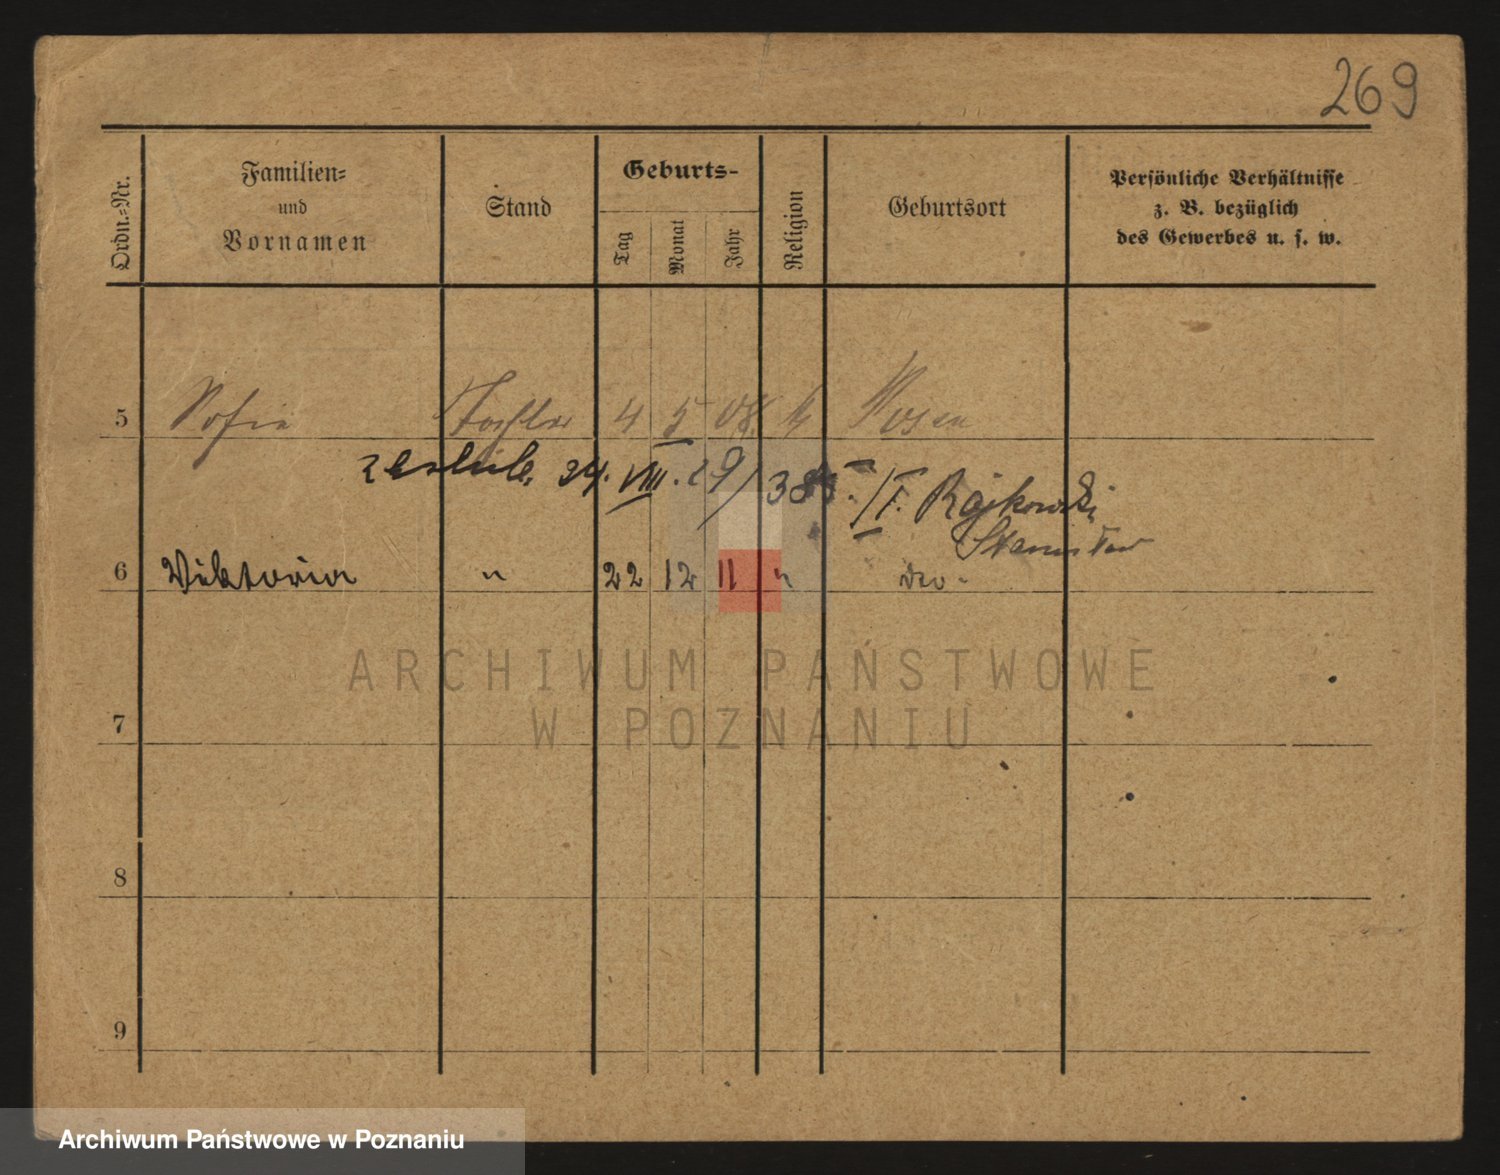 269
Ordn.-Nr.
Familien-
und
Vornamen
Stand
Geburts-
Tag
Monat
Jahr
Religion
Geburtsort
Persönliche Verhältnisse
z. B. bezüglich
des Gewerbes u. s. w.
5 Sofie Tochter 4 5 08 k Posen
24. VIII. 29/ 385. /I. Rajkowski
Stanisław
6 Viktoria " 22 12 11 " dto.
ARCHIWUM PAŃSTWOWE
W POZNANIU
7
8
9
Archiwum Państwowe w Poznaniu